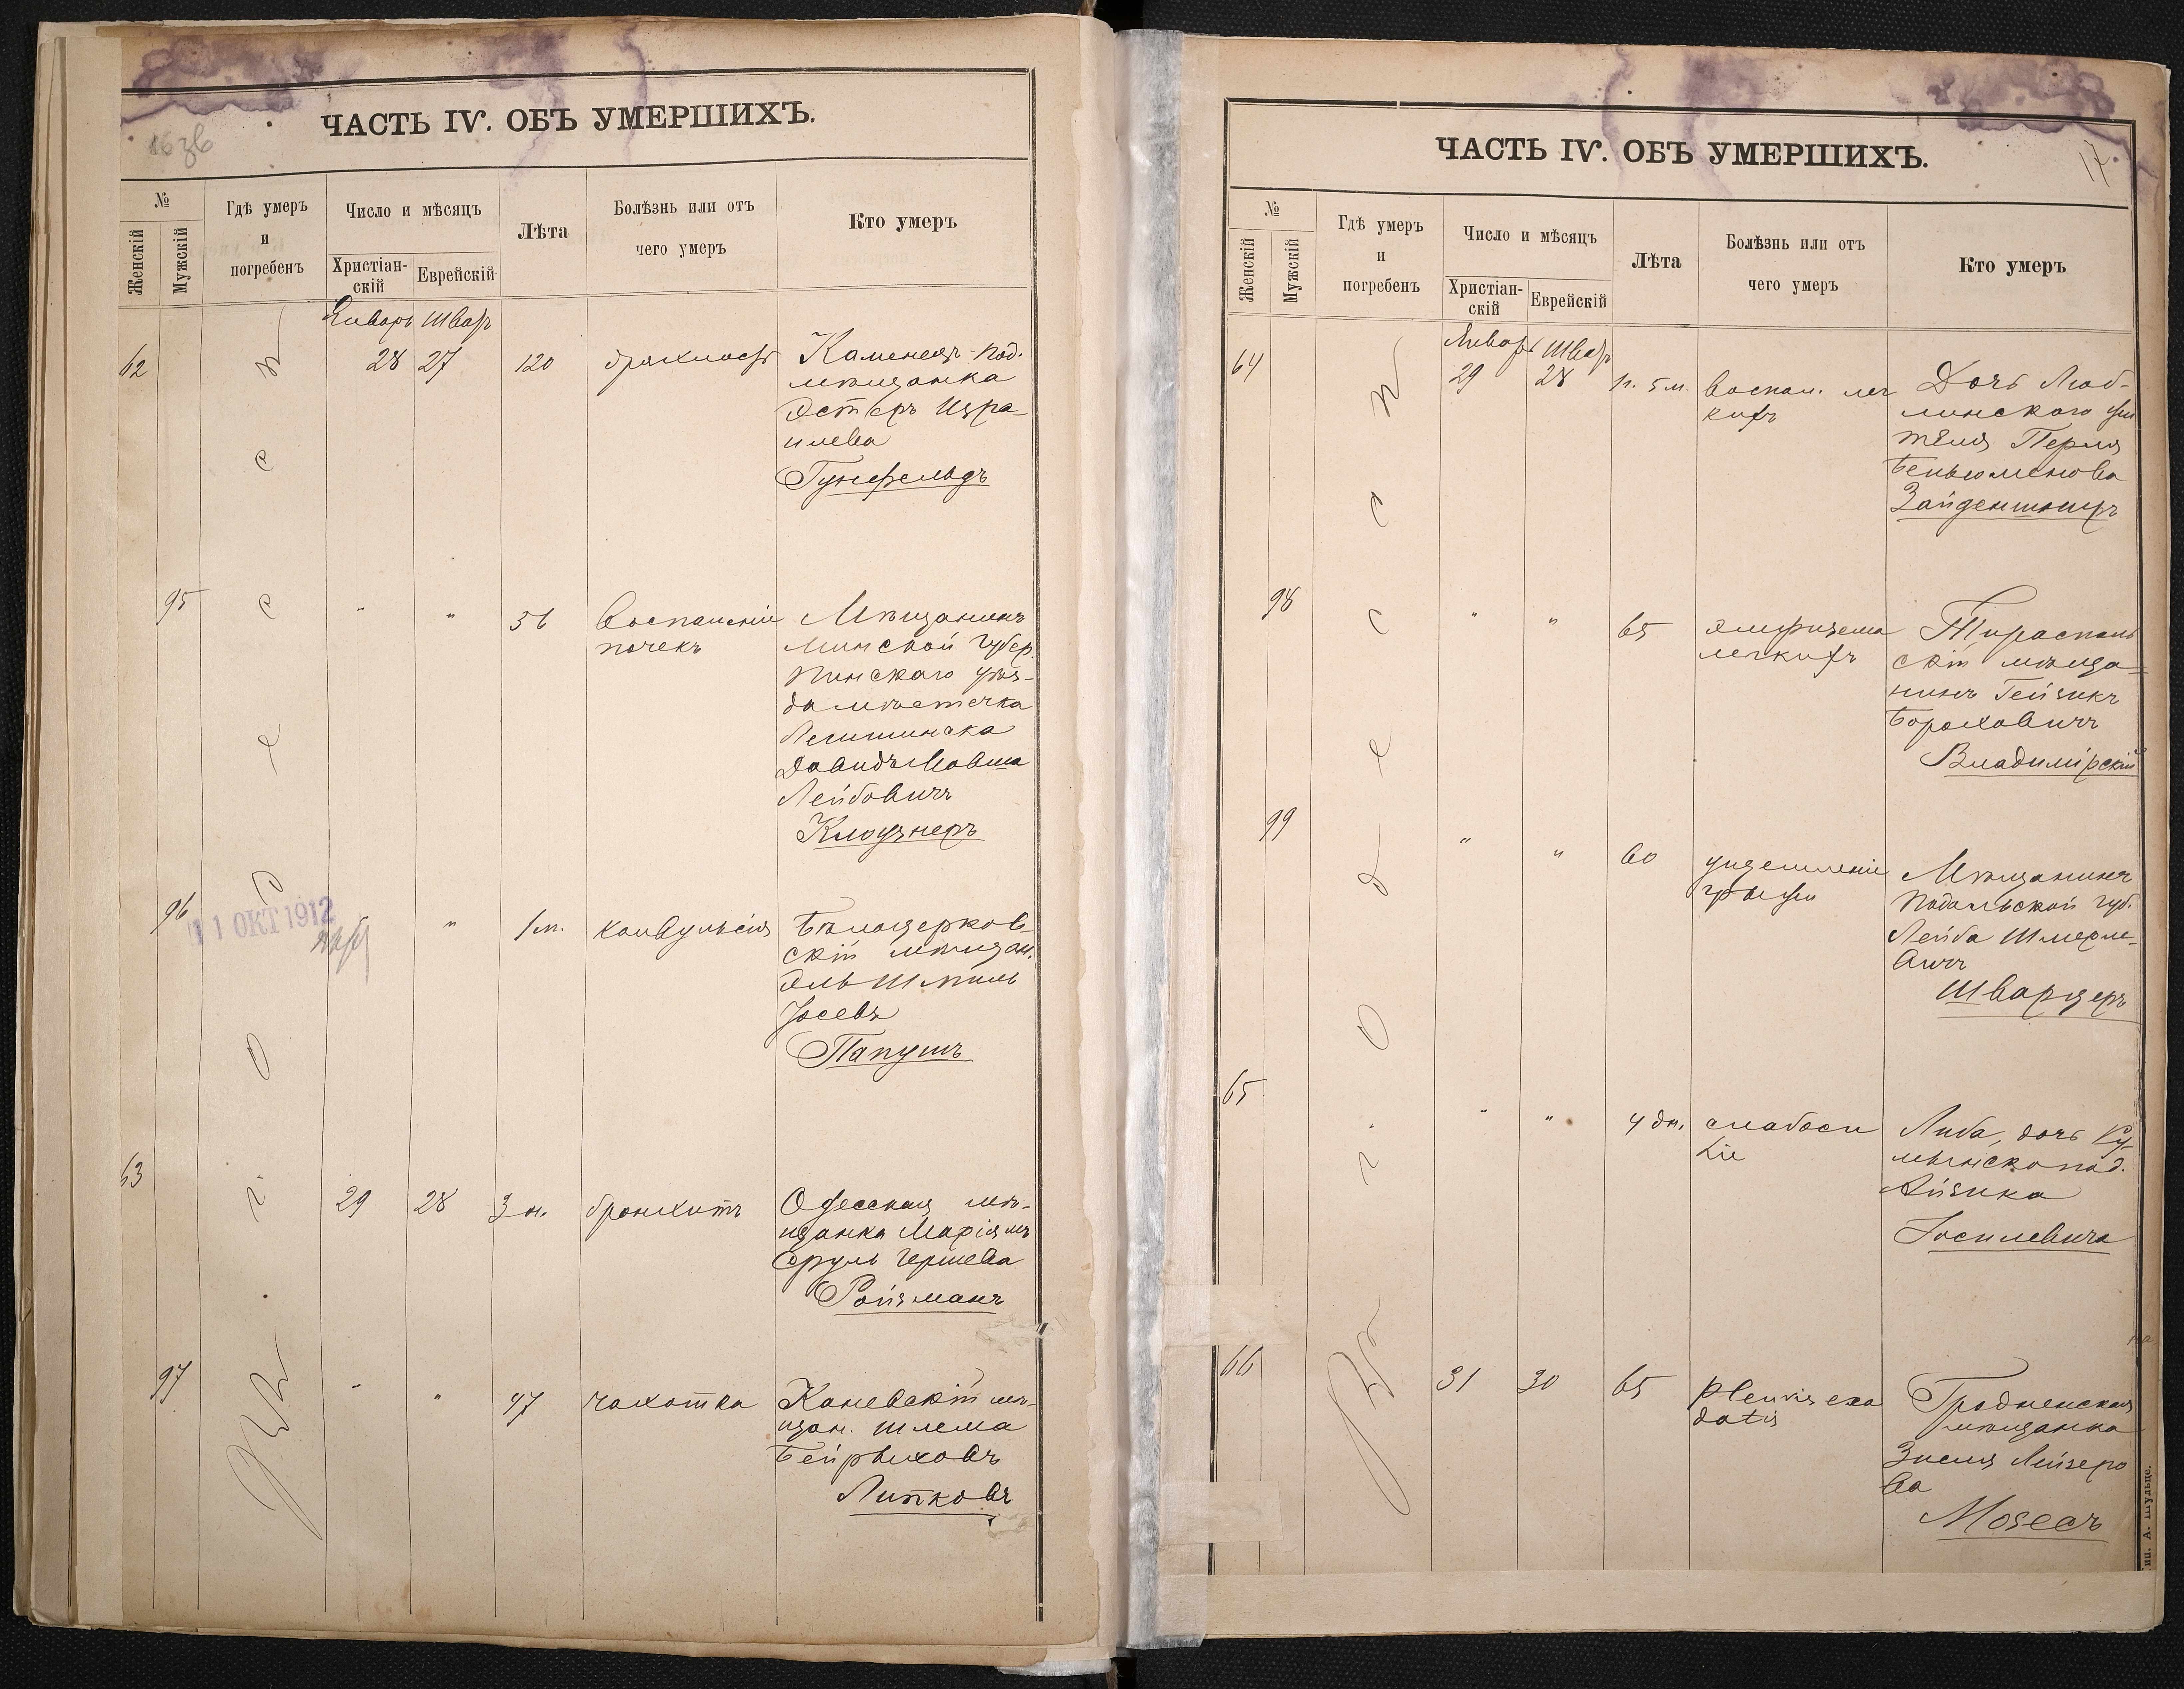 ЧАСТЬ IV. ОБЪ УМЕРШИХЪ.
№
Женскій
Мужскій
Гдѣ умеръ
и
погребенъ
Число и мѣсяцъ
Христіан-
скій
Еврейскій
Лѣта
Болѣзнь или отъ
чего умеръ
Кто умеръ
Январь Шват
62 28 27 120 дряхлость Каменец-Под.
мѣщанка
Эстеръ Изра-
илева
Гунфельдъ
въ г. Одессѣ
95 " " 56 Воспаленіе
почекъ
Мѣщанинъ
Минской губер.
Пинскаго уѣз-
да мѣстечка
Давидъ Мовша
Лейбовичъ
Клаузнеръ
11 ОКТ 1912
96 " 1 м. конвульсія Бѣлоцерков-
скій мѣщан.
Эль Шмиль
Іосевъ
Папушъ
63 29 28 3 н. бронхитъ Одесская мѣ-
щанка Маріямъ
Сруль Гершева
Ройзманъ
97 " " 47 чахотка Каневскій мѣ-
щан. Шлема
Бейрыховъ
Липковъ
ЧАСТЬ IV. ОБЪ УМЕРШИХЪ.
17
№
Женскій
Мужскій
Гдѣ умеръ
и
погребенъ
Число и мѣсяцъ
Христіан-
скій
Еврейскій
Лѣта
Болѣзнь или отъ
чего умеръ
Кто умеръ
Январь Шват
64 29 28 1 г. 5 м. воспал. лег
кихъ
Дочь Люб-
линского жи
теля Перля
Беньюменова
Зайденшниръ
въ г. Одессѣ
98 " " 65 эмфизема
легкихъ
Тирасполь
скій мѣща-
нинъ Гейзикъ
Бороховичъ
Владимірскій
99 " " 60 ущемленіе
грыжи
Мѣщанинъ
Подольской губ.
Лейба Шмерле-
вичъ
Шварцеръ
65 " " 4 дн. слабоси
Либа, дочь
Айзика
Іосилевича
66 31 30 65 pleuris exa
datis
Гродненская
мѣщанка
Зисля Лейзеро
ва
Мозесъ
ип. А. Шульце.